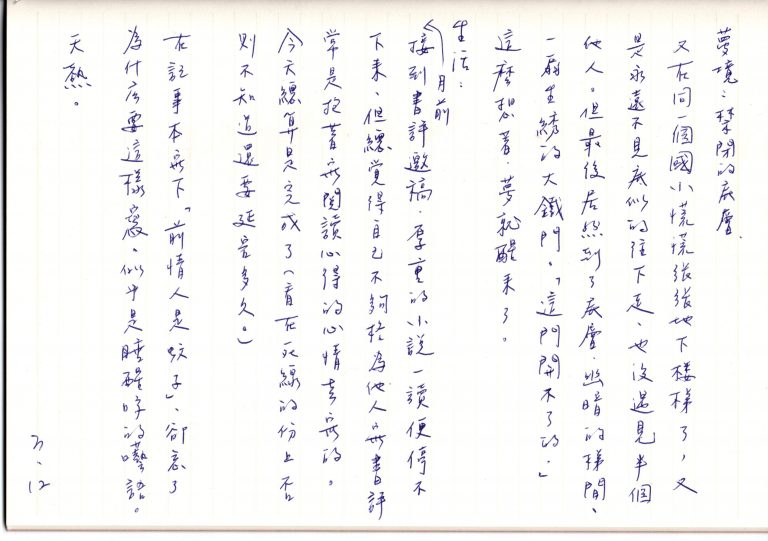 夢境:禁閉的底層.
又在同一個國小慌慌張張地下樓梯了,又
是永遠不見底似的往下走、也沒遇見半個
他人。但最後居然到了底層.幽暗的梯間、
一扇生銹的大鐵門。「這門開不了的.」
這麼想著.夢就醒來了。
生活:
月前
接到書評邀稿.厚重的小說一讀便停不
下來、但總覺得自己不夠格為他人寫書評
常是抱著寫閱讀心得的心情去寫的。
今天總算是完成了(看在死線的份上否
則不知道還要延宕多久。)
在記事本寫下「前情人是蚊子」、卻忘了
為什麼要這樣寫。似乎是睡醒時的囈語。
天熱。
7.12